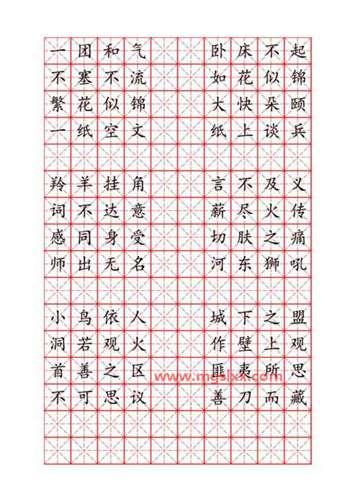 一团和气 卧床不起
不塞不流 如花似锦
繁花似锦 大快朵颐
一纸空文 纸上谈兵
羚羊挂角 言不及义
词不达意 薪尽火传
感同身受 切肤之痛
师出无名 河东狮吼
小鸟依人 城下之盟
洞若观火 作壁上观
首善之区 匪夷所思
www.mgslxx.com
不可思议 善刀而藏